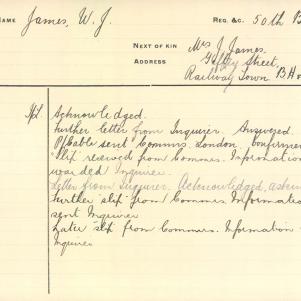 NAME James, W. J. REG. &C. 50th B
NEXT OF KIN Mrs J. James,
ADDRESS Street,
Railway Town BH
Acknowledged.
Further letter from Inquirer. Answered.
Commrs. London.
"Slip" received from Commrs. Information
warded Inquirer.
Letter from Inquirer. Acknowledged,
Further "slip" from Commrs Informati
sent Inquirer
Later "slip" from Commrs. Information
Inquirer